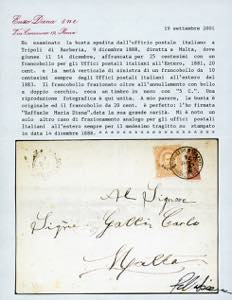 Enzo Diena s.n.c.
19 settembre 2001
Ho esaminato la busta spedita dall'ufficio postale italiano a
Tripoli di Barberia, 9 dicembre 1888, diretta a Malta, dove
giunse il 14 dicembre, affrancata per 25 centesimi con un
francobollo per gli Uffici postali italiani all'Estero, 1881, 20
cent. e la metà verticale di sinistra di un francobollo da 10
centesimi sempre degli Uffici postali italiani all'estero del
1883. Il francobollo frazionato oltre all'annullamento con bollo
a doppio cerchio, reca un timbro in nero con "5 C.". Una
riproduzione fotografica è qui unita. A mio parere, la busta è
originale ed il francobollo da 20 cent. è perfetto: l'ho firmata
"Raffaele Maria Diena", data la sua grande rarità. Mi è noto un
solo altro caso di frazionamento analogo per gli uffici postali
italiani all'estero sempre per il medesimo tragitto su stampato
in data 14 dicembre 1888.
Al Signore
Signr Gallia Carlo
Malta